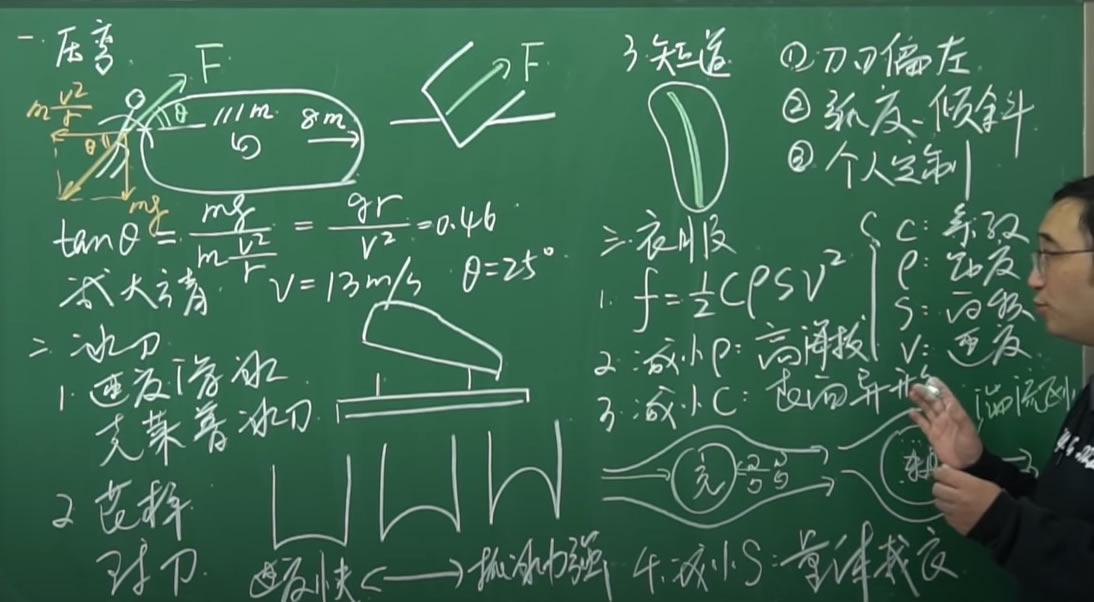 一.压弯
F
m v²/r
θ
θ
mg
111m
8m
F
tanθ = mg / m v²/r = gr / v² = 0.46
武大靖 v=13m/s θ=25°
二.冰刀
1.速度滑冰
克莱普冰刀
2花样
磨刀
速度快 抓冰力强
3.短道
①刀刃偏左
②弧度、倾斜
③个人定制
三.衣服
1. f=½CρSv²
C:系数
ρ:密度
S:面积
V:速度
2.减小ρ:高海拔
3.减小C:表面异形
湍流区小
光
4.减小S:量体裁衣